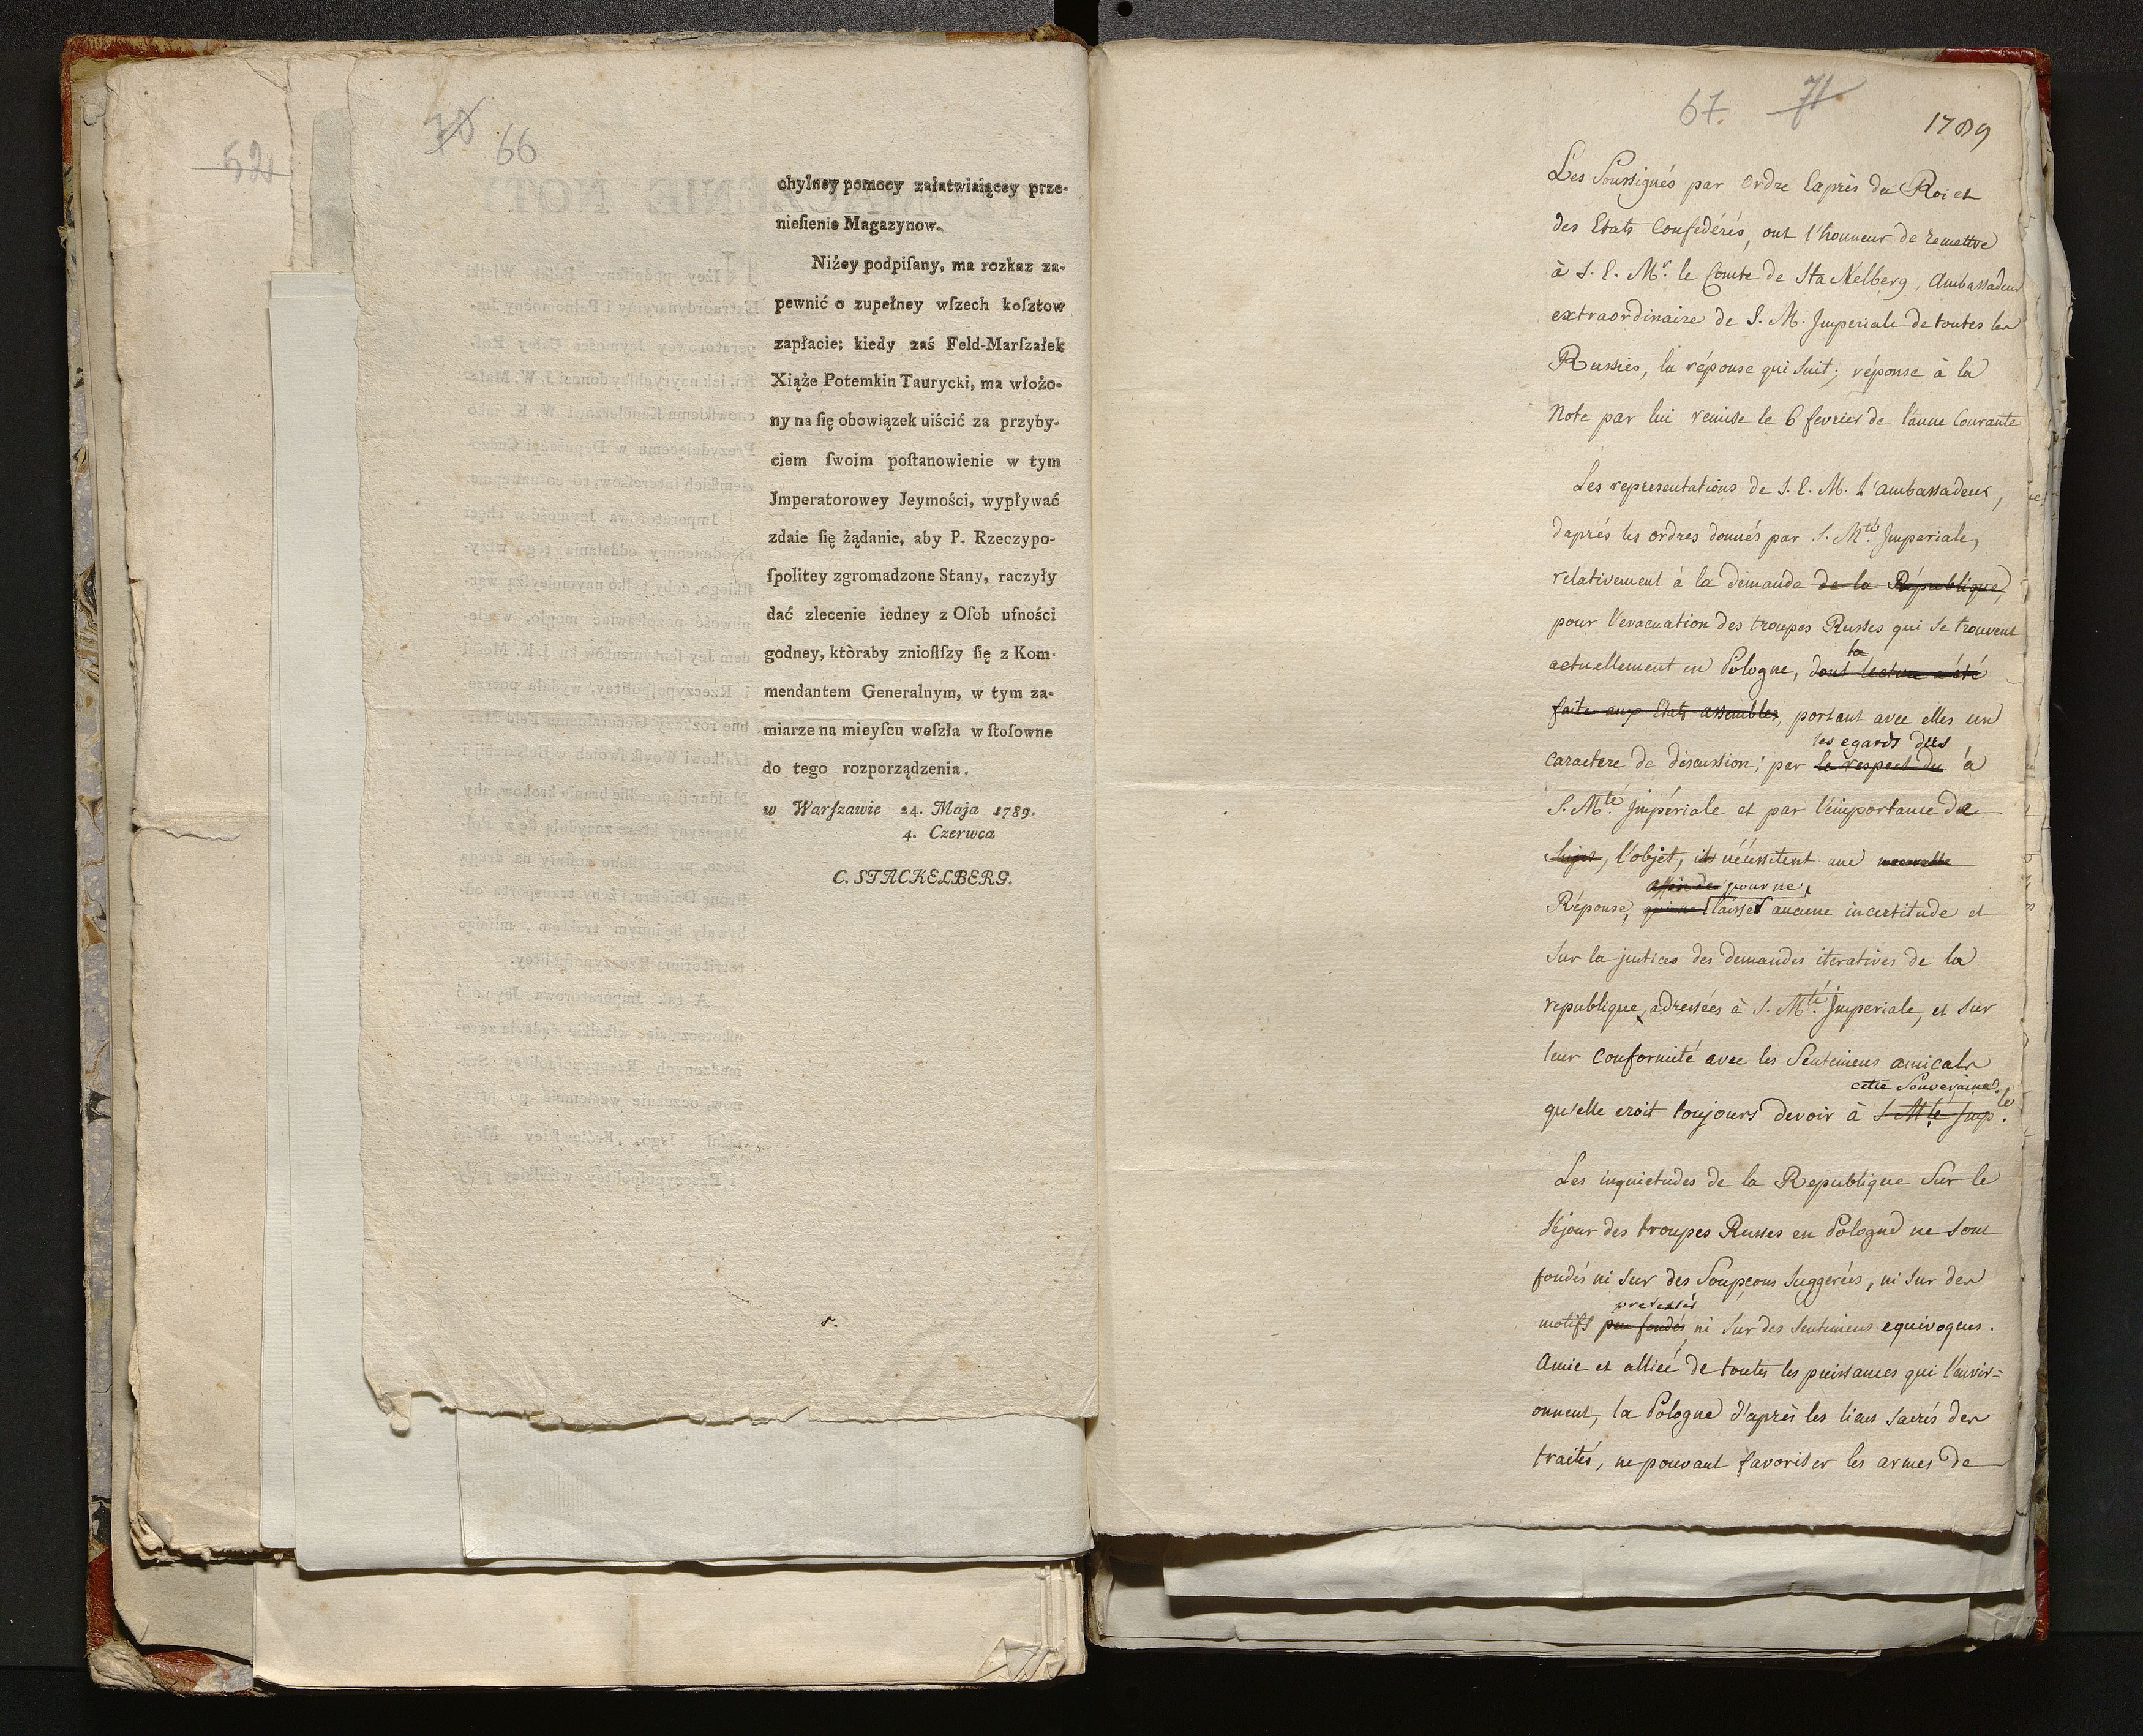 52
70 66
chylney pomocy załatwiaiącey prze-
nieſienie Magazynow.
Niżey podpiſany, ma rozkaz za-
pewnić o zupełney wſzech koſztow
zapłacie; kiedy zaś Feld-Marſzałek
Xiąże Potemkin Taurycki, ma włożo-
ny na ſię obowiązek uiścić za przyby-
ciem ſwoim poſtanowienie w tym
Jmperatorowey Jeymości, wypływać
zdaie ſię żądanie, aby P. Rzeczypo-
ſpolitey zgromadzone Stany, raczyły
dać zlecenie iedney z Oſob ufności
godney, ktòraby znioſſzy ſię z Kom-
mendantem Generalnym, w tym za-
miarze na mieyſcu weſzła w ſtoſowne
do tego rozporządzenia.
w Warſzawie 24. Maja 1789.
4. Czerwca
C. STACKELBERG.
67. 71
1789
Les Soussignés par ordre exprès du Roi et
des Etats Confédérés, ont l'honneur de remettre
à S. E. Mr. le Comte de Stakelberg, Ambassadeur
extraordinaire de S. M. Imperiale de toutes les
Russies, la réponse qui suit; réponse à la
Note par lui remise le 6 fevrier de l'anne Courante
Les representations de S. E. M. L'ambassadeur,
d'aprés les ordres donnés par S. Mté. Imperiale,
relativement à la demande de la République,
pour l'evacuation des troupes Russes qui se trouvent
la
actuellement en Pologne, dont lecture a été
faite aux Etats assemblés, portant avec elles un
les egards dus
caractere de discussion; par le respect du à
S. Mté. Impériale et par l'importance de
Sujet, l'objet, ils nécessitent une nouvelle
affin de pour ne
Réponse, qui ne laisser aucune incertitude et
sur la justices des demandes iteratives de la
republique, adressées à S. Mté. Imperiale, et sur
leur conformité avec les Sentimens amicals
cette Souveraine.
qu'elle croit toujours devoir à S Mté Imple.
Les inquietudes de la Republique Sur le
Séjour des troupes Russes en Pologne ne sont
fondés ni sur des Soupçons suggerées, ni sur des
pretextés
motifs peu fondés ni sur des sentimens equivoques.
Amie et alliée de toutes les puissances qui l'envir=
onnent, la Pologne d'après les liens sacrés des
traités, ne pouvant favoriser les armes de